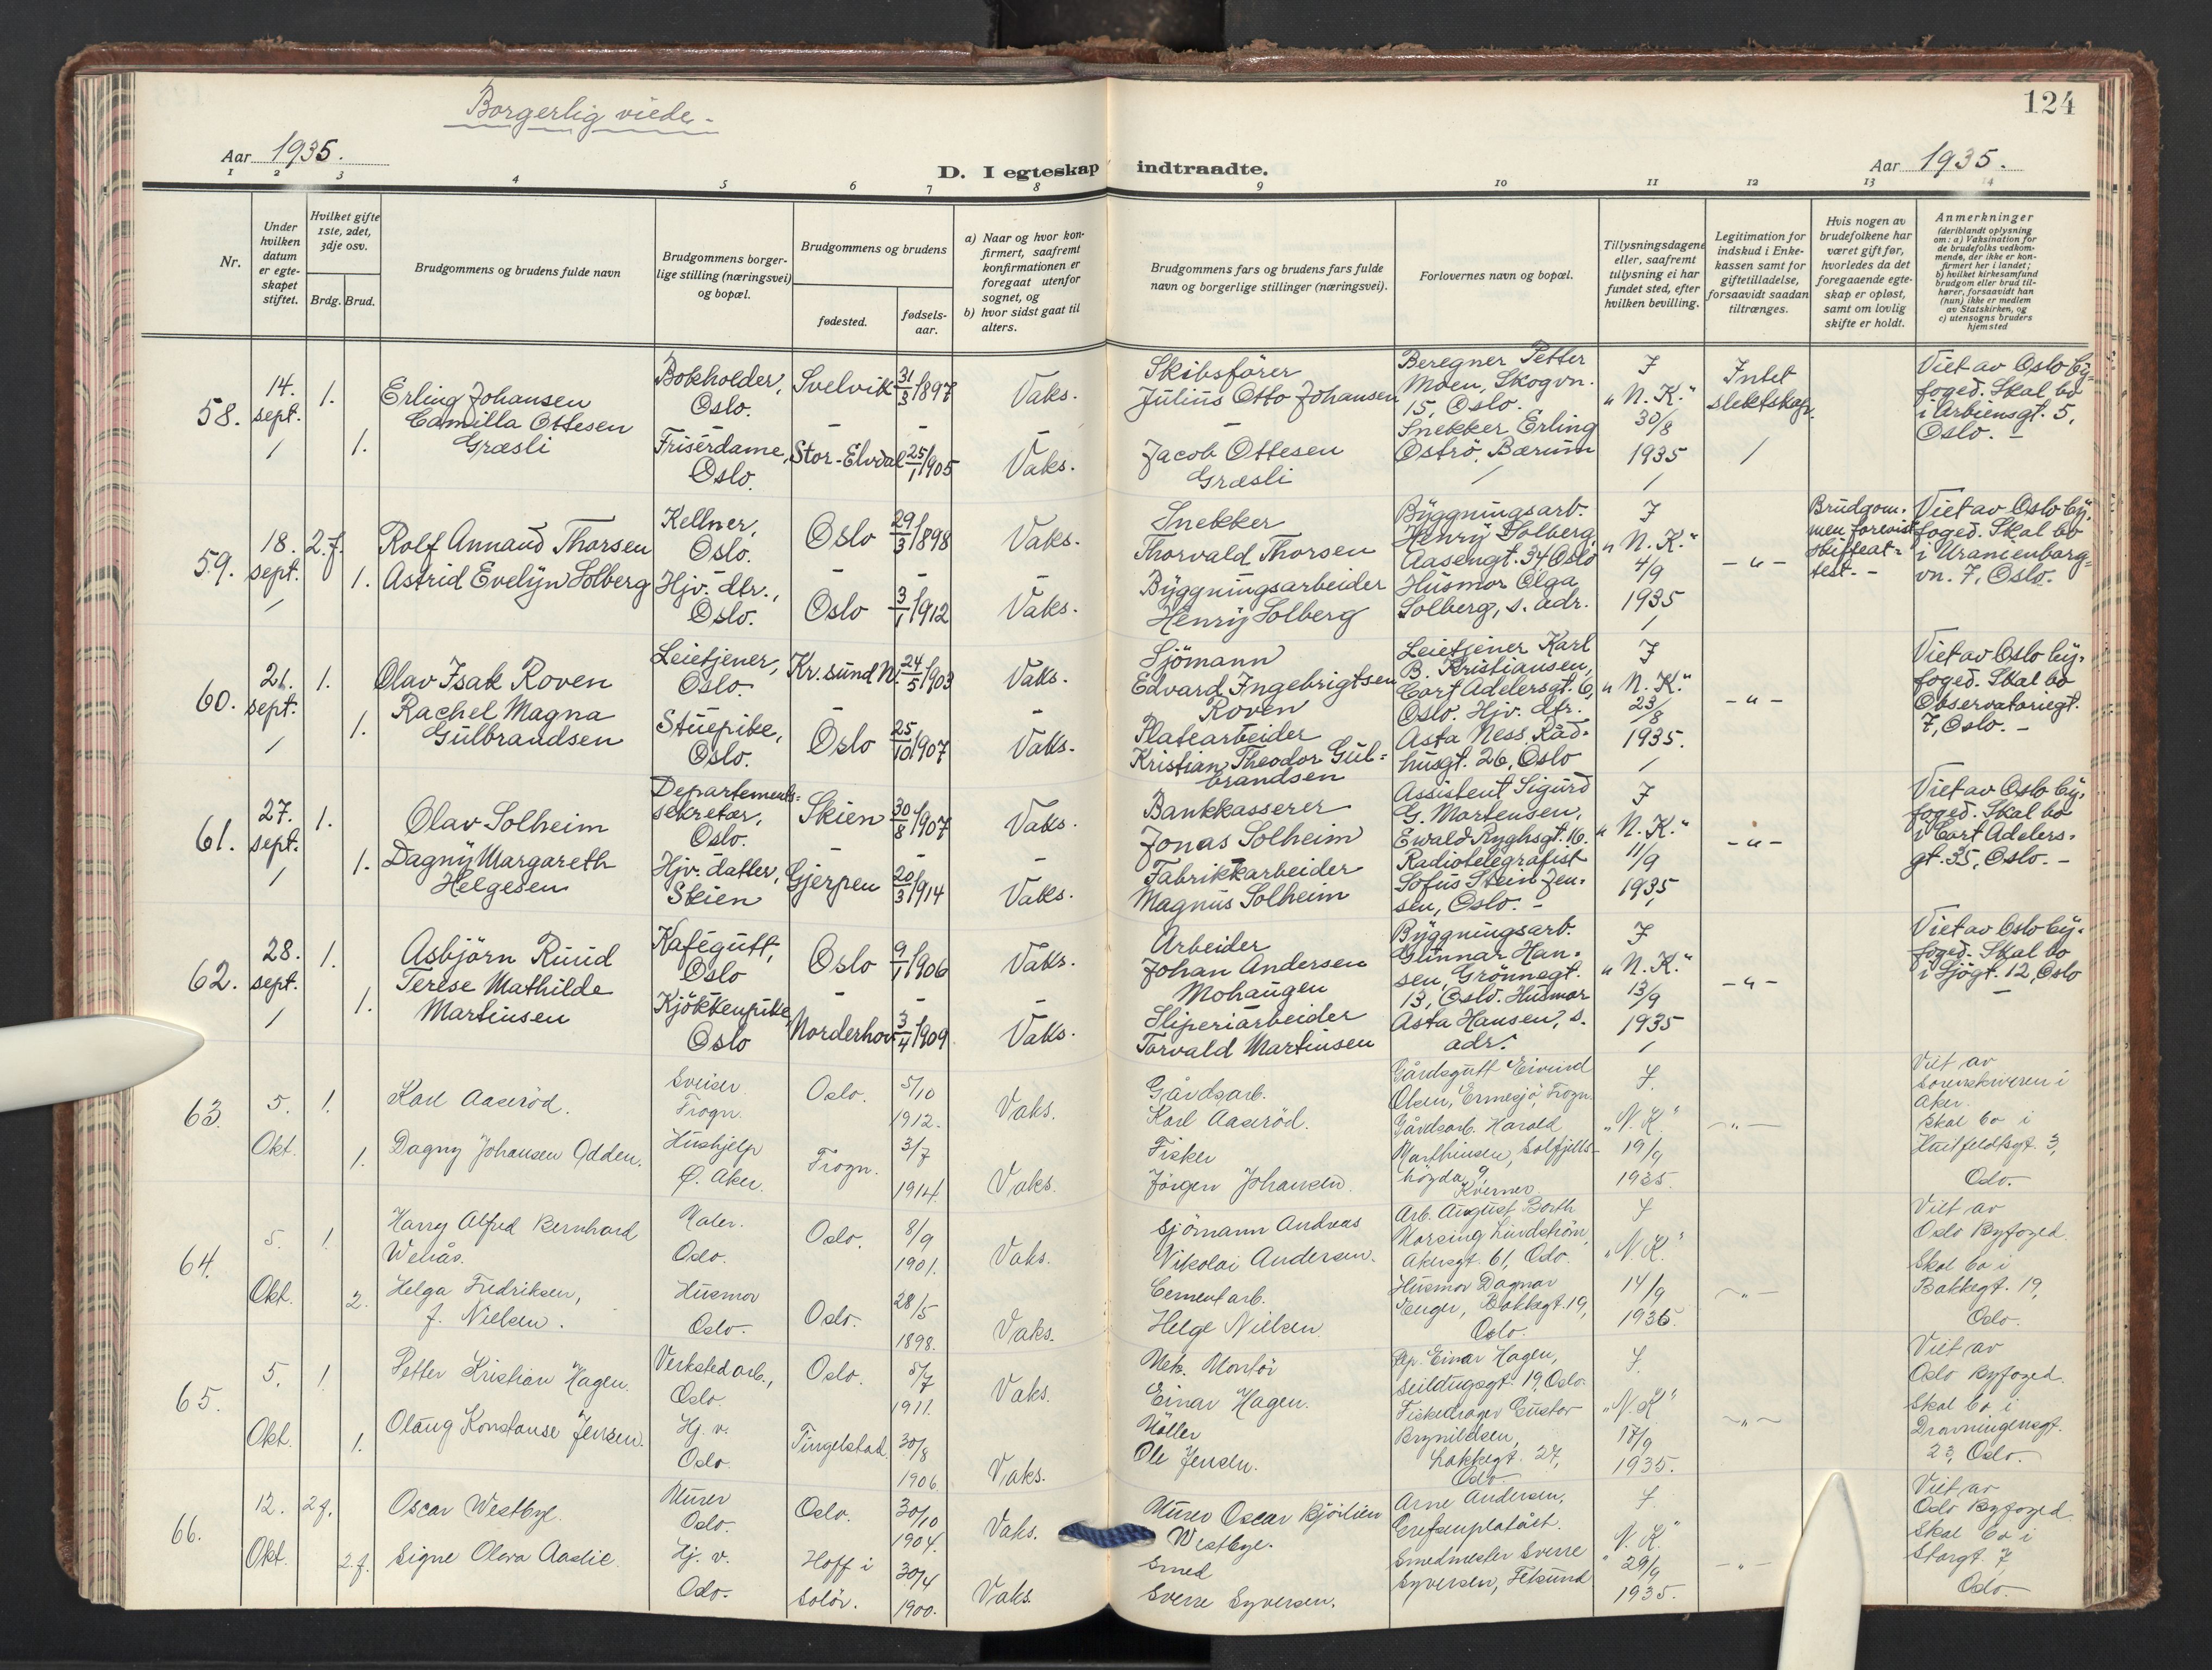 Borgerlig viede.
124
Aar 1935.
D. I egteskap indtraadte.
Aar 1935.
1 2 3 4 5 6 7 8 9 10 11 12 13 14
Nr.
Under hvilken datum er egteskapet stiftet.
Hvilket gifte 1ste, 2det, 3dje osv.
Brdg. Brud.
Brudgommens og brudens fulde navn
Brudgommens borgerlige stilling (næringsvei) og bopæl.
Brudgommens og brudens
fødested.
fødselsaar.
a) Naar og hvor konfirmert, saafremt konfirmationen er foregaat utenfor sognet, og
b) hvor sidst gaat til alters.
Brudgommens fars og brudens fars fulde navn og borgerlige stillinger (næringsvei).
Forlovernes navn og bopæl.
Tillysningsdagene eller, saafremt tillysning ei har fundet sted, efter hvilken bevilling.
Legitimation for indskud i Enkekassen samt for giftetilladelse, forsaavidt saadan tiltrænges.
Hvis nogen av brudefolkene har været gift før, hvorledes da det foregaaende egteskap er opløst, samt om lovlig skifte er holdt.
Anmerkninger (deriblandt oplysning om: a) Vaksination for de brudefolks vedkommende, der ikke er konfirmert her i landet; b) hvilket kirkesamfund brudgom eller brud tilhører, forsaavidt han (hun) ikke er medlem av Statskirken, og c) utensogns bruders hjemsted
58. 14. sept. 1. Erling Johansen Bokholder, Oslo. Svelvik 31/3 1897 Vaks. Skibsfører Julius Otto Johansen
1. Camilla Ottesen Græsli Frisérdame, Oslo. Stor-Elvdal 25/1 1905 Vaks. Jacob Ottesen Græsli
Beregner Petter Moen, Skogvn. 15, Oslo. Snekker Erling Øströ, Bærum
I "N.K." 30/8 1935
Intet slektskap.
Viet av Oslo byfoged. Skal bo i Arbiensgt. 5, Oslo. -
59. 18. sept. 2. f. Rolf Annand Thorsen Kellner, Oslo. Oslo 29/3 1898 Vaks. Snekker Thorvald Thorsen
1. Astrid Evelyn Solberg Hjv. dtr., Oslo. Oslo 3/1 1912 Vaks. Byggningsarbeider Henry Solberg
Byggningsarb. Henry Solberg, Aasengt. 34 Oslo Husmor Olga Solberg, s. adr.
I "N.K." 4/9 1935
- " -
Brudgommen forevist skifteattest. -
Viet av Oslo byfoged. Skal bo i Uranienborgvn. 7, Oslo.
60. 21. sept. 1. Olav Isak Roven Leietjener, Oslo. Kr.sund N. 24/5 1903 Vaks. Sjömann Edvard Ingebrigtsen Roven
1. Rachel Magna Gulbrandsen Stuepike, Oslo. Oslo 25/10 1907 Vaks. Platearbeider Kristian Theodor Gulbrandsen
Leietjener Karl B. Kristiansen, Cort Adelersgt. 6, Oslo. Hjv. dtr. Asta Ness Rådhusgt. 26, Oslo
I "N.K." 23/8 1935.
- " -
Viet av Oslo byfoged. Skal bo Observatoriegt. 7, Oslo. -
61. 27. sept. 1. Olav Solheim Departementssekretær, Oslo. Skien 30/8 1907 Vaks. Bankkasserer Jonas Solheim
1. Dagny Margareth Helgesen Hjv. datter, Skien Gjerpen 20/3 1914 Vaks. Fabrikkarbeider Magnus Solheim
Assistent Sigurd G. Mortensen, Ewald Ryghsgt. 16. Radiotelegrafist Sofus Stein Jensen, Oslo. -
I "N.K." 11/9 1935
- " -
Viet av Oslo byfoged. Skal bo i Cort Adelersgt. 35, Oslo. -
62. 28. sept. 1. Asbjörn Ruud Kafégutt, Oslo Oslo 9/1 1906 Vaks. Arbeider Johan Andersen Mohaugen
1. Terese Mathilde Martinsen Kjökkenpike Oslo Norderhov 3/4 1909 Vaks. Sliperiarbeider Torvald Martinsen
Byggningsarb. Gunnar Hansen, Grönnegt. 13, Oslo. Husmor Asta Hansen, s. adr.
I "N.K." 13/9 1935
- " -
Viet av Oslo byfoged. Skal bo i Sjögt. 12, Oslo
63. 5. Okt. 1. Karl Aaseröd. Sveiser Frogn. Oslo. 5/10 1912. Vaks. Gårdsarb. Karl Aaseröd.
1. Dagny Johansen Odden. Hushjelp Ø. Aker. Frogn. 3/7 1914. Vaks. Fisker Jörgen Johansen.
Gårdsgutt Eivind Olsen, Ermesjö, Frogn. Gårdsarb. Harald Marthinsen, Solfjellshögda 9, Kværner
I "N.K." 19/9 1935.
- " -
Viet av Sorenskriveren i Aker. Skal bo i Huitfeldtsgt. 3, Oslo.
64. 5. Okt. 1. Harry Alfred Bernhard Wenås. Maler. Oslo. Oslo. 8/9 1901. Vaks. Sjömann Andreas Nikolai Andersen.
2. Helga Fredriksen, f. Nielsen. Husmor Oslo. Oslo. 28/5 1898. Vaks. Cementarb. Helge Nielsen.
Arb. August Borth Lindström, Akersgt. 61, Oslo. Husmor Dagmar Bakkegt. 19, Oslo.
I "N.K." 14/9 1935.
- " -
Viet av Oslo Byfoged. Skal bo i Bakkegt. 19, Oslo.
65. 5. Okt. 1. Petter Kristian Hagen. Verkstedarb., Oslo. Oslo. 5/7 1911. Vaks. Mek. Montör Einar Hagen.
1. Olaug Konstanse Jensen. Hj. v. Oslo. Tingelstad. 30/8 1906 Vaks. Möller Ole Jensen.
Rep. Einar Hagen, Seildugsgt. 19, Oslo. Gustav Brynildsen, Lakkegt. 27, Oslo.
I "N.K" 17/9 1935.
- " -
Viet av Oslo Byfoged. Skal bo i Dronningensgt. 23, Oslo.
66. 12. Okt. 2 f. Oscar Westbye. Murer Oslo. Oslo. 30/10 1904. Vaks. Murer Oscar Westbye.
2. f. Signe Olora Aaslie. Hj. v. Oslo. Hoff i Solör. 30/4 1900. Vaks. Smed Sverre Syversen.
Arne Andersen, Grefsenplatået. Smedmester Sverre Syversen, Fetsund
I "N.K." 29/9 1935.
- " -
Viet av Oslo Byfoged. Skal bo i Storgt. 7, Oslo.